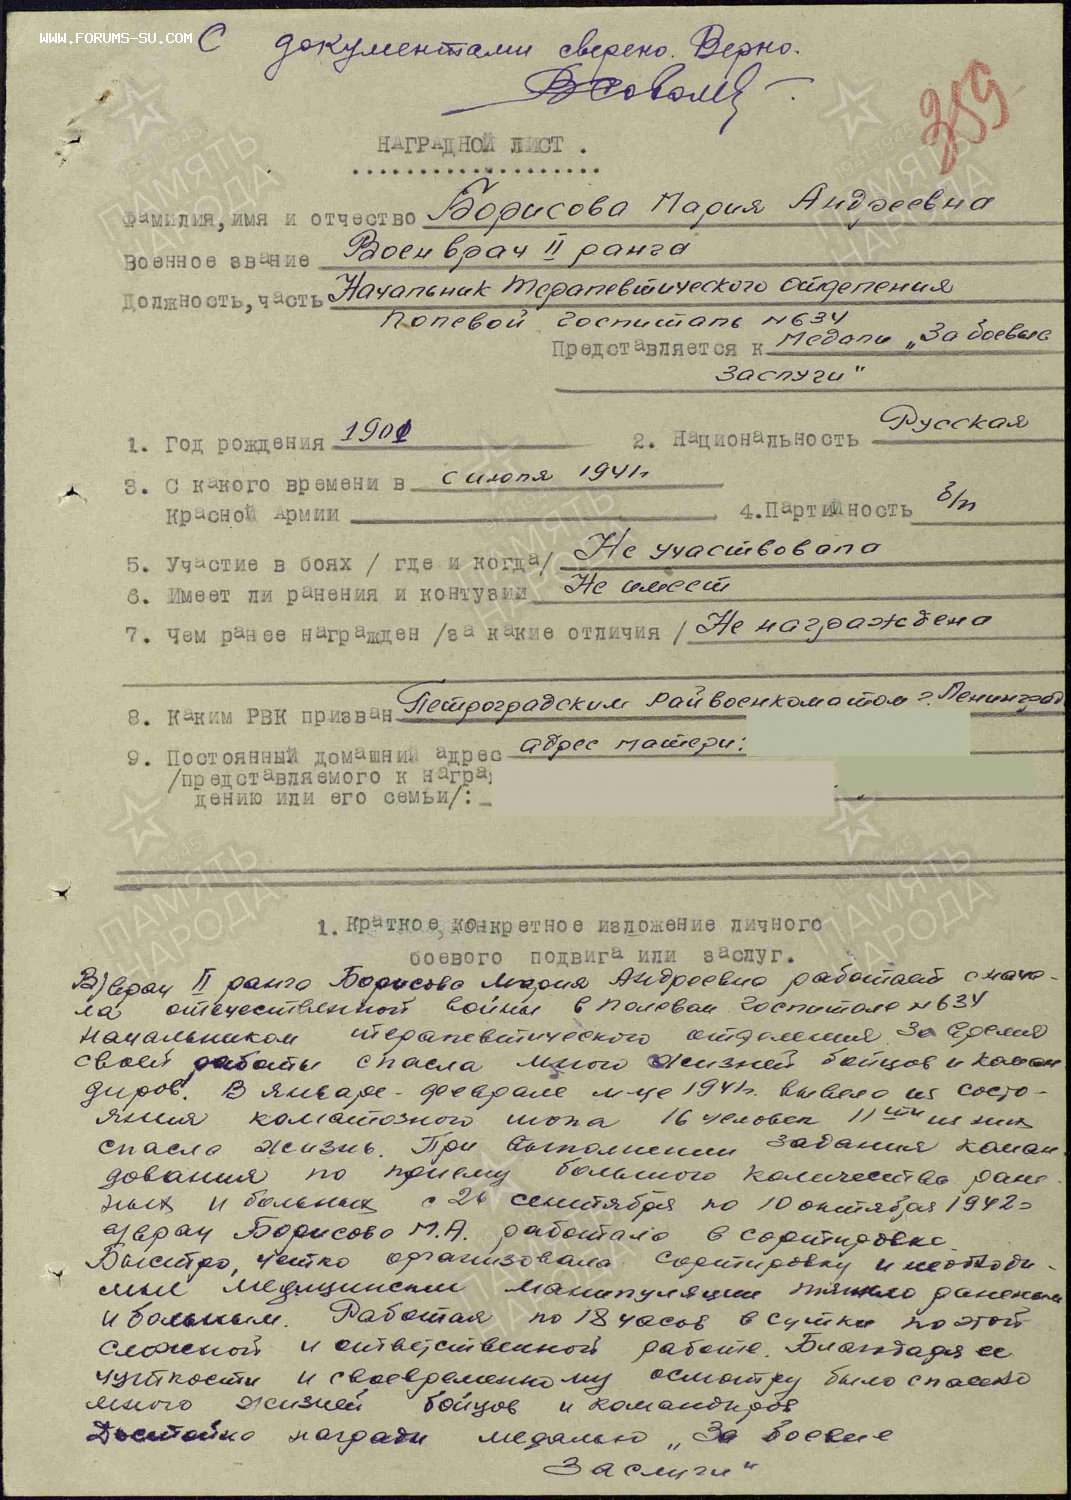 WWW.FORUMS-SU.COM
С документами сверено. Верно.
359
НАГРАДНОЙ ЛИСТ.
Фамилия, имя и отчество Борисова Мария Андреевна
Военное звание Военврач II ранга
Должность, часть Начальник терапевтического отделения
Полевой госпиталь №634
Представляется к медали „За боевые
заслуги"
1. Год рождения 1901 2. Национальность Русская
3. С какого времени в с июля 1941г
Красной Армии 4. Партийность б/п
5. Участие в боях / где и когда/ Не участвовала
6. Имеет ли ранения и контузии Не имеет
7. Чем ранее награжден /за какие отличия / Не награждена
8. Каким РВК призван Петроградским райвоенкоматом г. Ленинград
9. Постоянный домашний адрес адрес матери:
/представляемого к награ
дению или его семьи/:
1. Краткое, конкретное изложение личного
боевого подвига или заслуг.
В/врач II ранга Борисова Мария Андреевна работает с нача-
ла отечественной войны в Полевом Госпитале №634
начальником терапевтического отделения. За время
своей работы спасла много жизней бойцов и коман
диров. В январе-феврале м-це 1941г. вывела из состо-
яния коматозного типа 16 человек 11ти из них
спасла жизнь. При выполнении задания коман
дования по приему большого количества ране
ных и больных с 26 сентября по 10 октября 1942г
в/врач Борисова М.А. работала в сортировке.
Быстро, четко организовала сортировку и необходи-
мые медицинские манипуляции тяжело раненым
и больным. Работая по 18 часов в сутки по этой
сложной и ответственной работе. Благодаря ее
чуткости и своевременному осмотру было спасено
много жизней бойцов и командиров
Достойна награды медалью „За боевые
Заслуги"
ПАМЯТЬ
НАРОДА
ПАМЯТЬ
НАРОДА
ПАМЯТЬ
НАРОДА
ПАМЯТЬ
НАРОДА
ПАМЯТЬ
НАРОДА